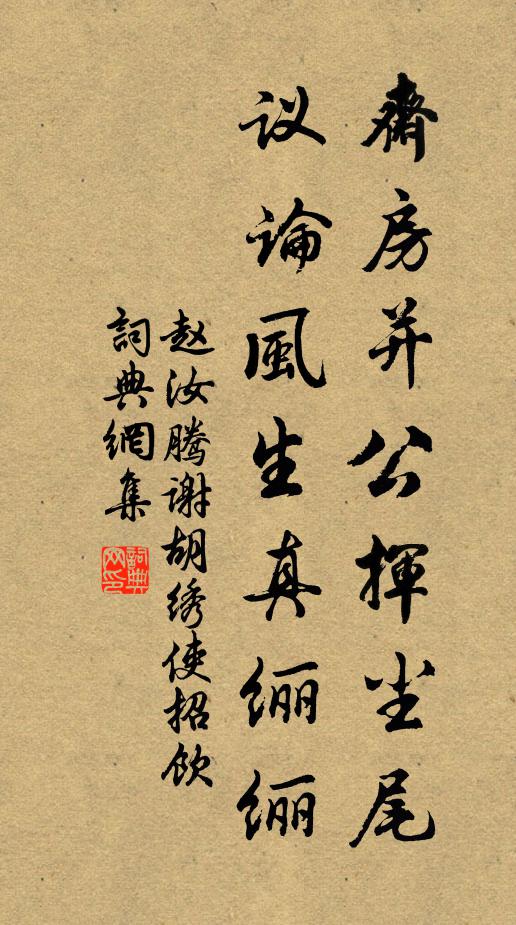 齋房并公揮尘尾
议論風生真𫄥𫄥
赵汝腾谢胡绣使招饮
詞典網集
詞典网印